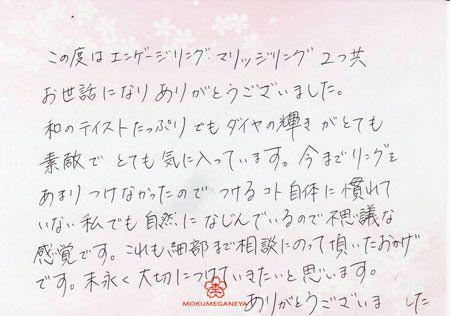 この度はエンゲージリング・マリッジリング 2つ共
お世話になりありがとうございました。
和のテイストたっぷりでもダイヤの輝きがとても
素敵でとても気に入っています。今までリングを
あまりつけなかったのでつけるコト自体に慣れて
いない私でも自然になじんでいるので不思議な
感覚です。これも細部まで相談にのって頂いたおかげ
です。末永く大切につけていきたいと思います。
ありがとうございました
MOKUMEGANEYA